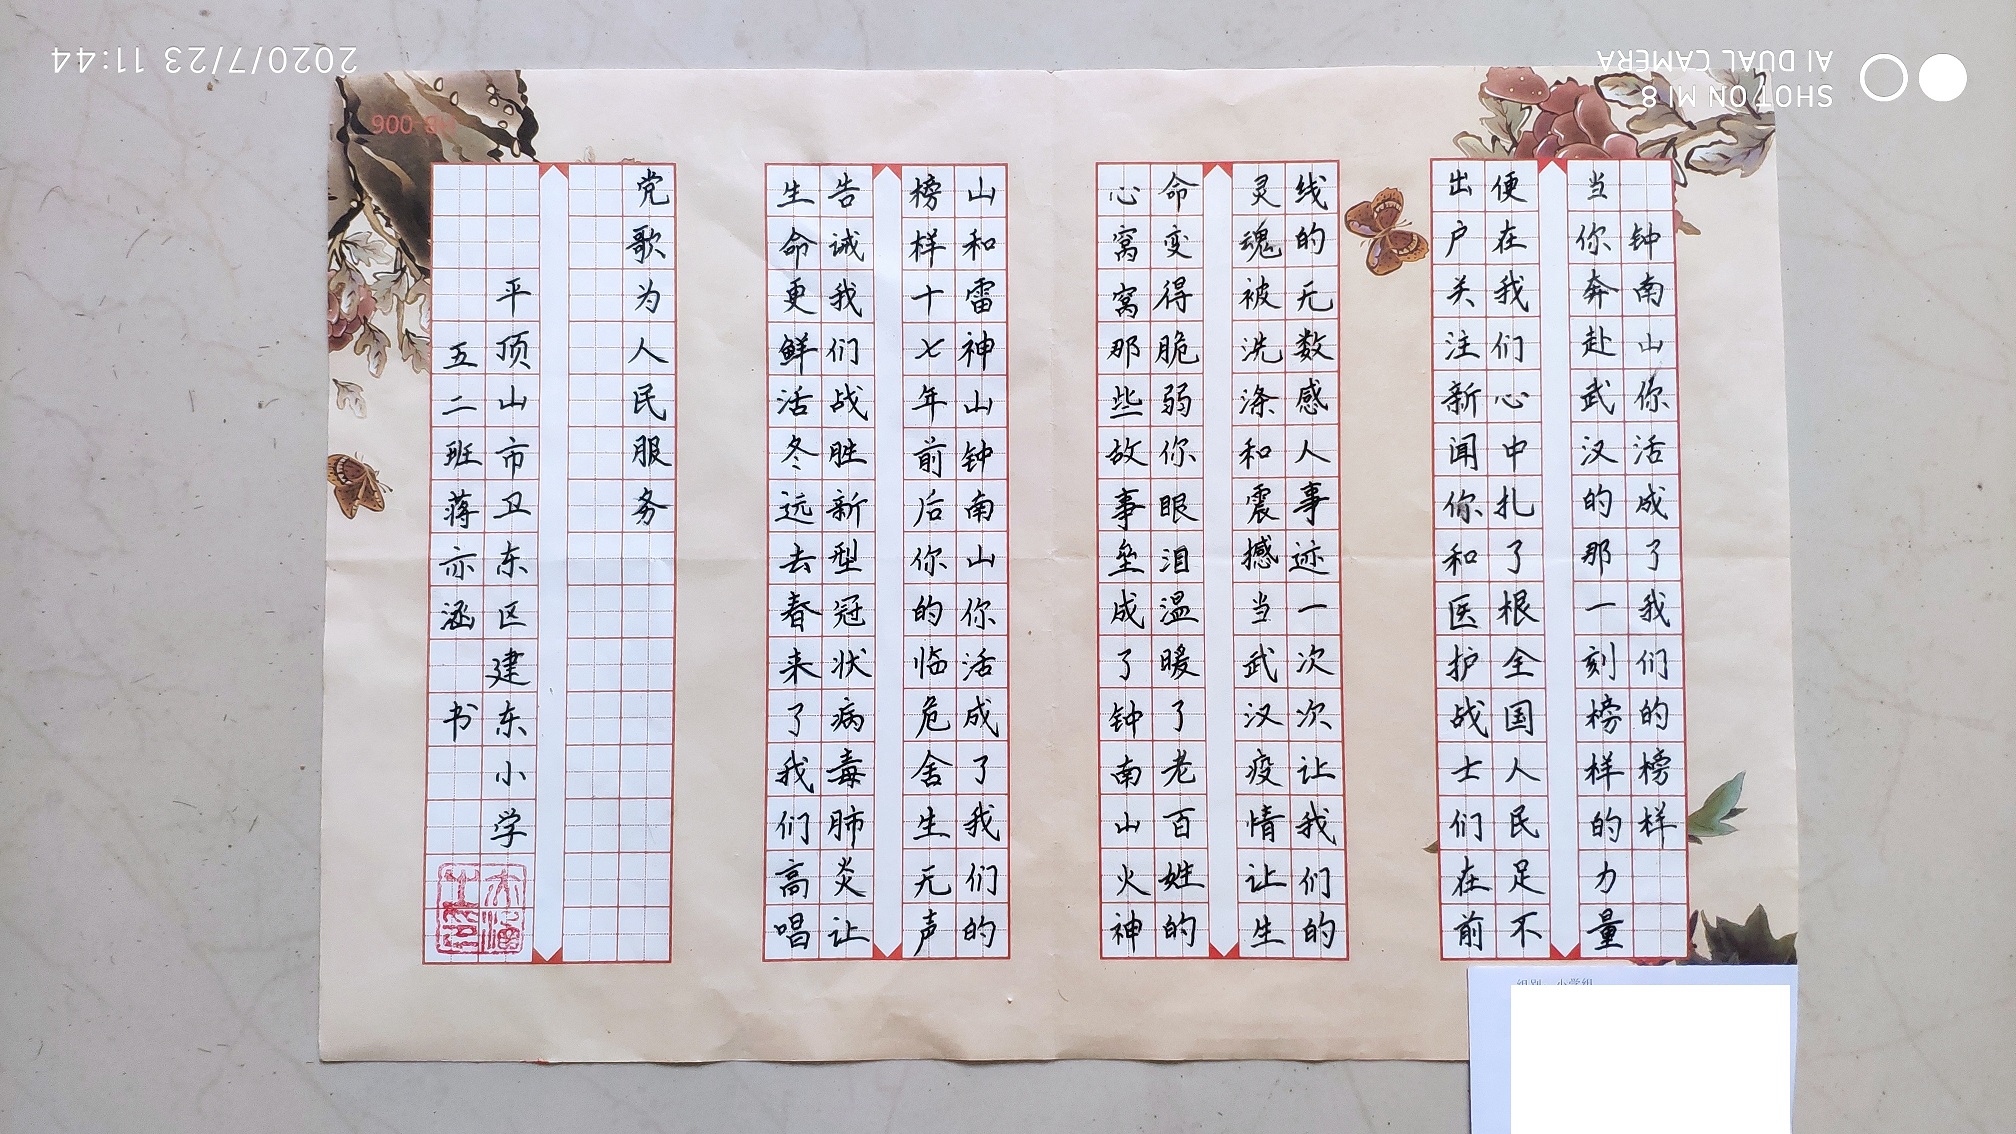 钟南山你活成了我们的榜样
当你奔赴武汉的那一刻榜样的力量
便在我们心中扎了根全国人民足不
出户关注新闻你和医护战士们在前
线的无数感人事迹一次次让我们的
灵魂被洗涤和震撼当武汉疫情让生
命变得脆弱你眼泪温暖了老百姓的
心窝窝那些故事垒成了钟南山火神
山和雷神山钟南山你活成了我们的
榜样十七年前后你的临危舍生无声
告诫我们战胜新型冠状病毒肺炎让
生命更鲜活冬远去春来了我们高唱
党歌为人民服务
平顶山市卫东区建东小学
五二班蒋亦涵 书
组别 小学组
2020/7/23 11:44
SHOT ON MI 8
AI DUAL CAMERA